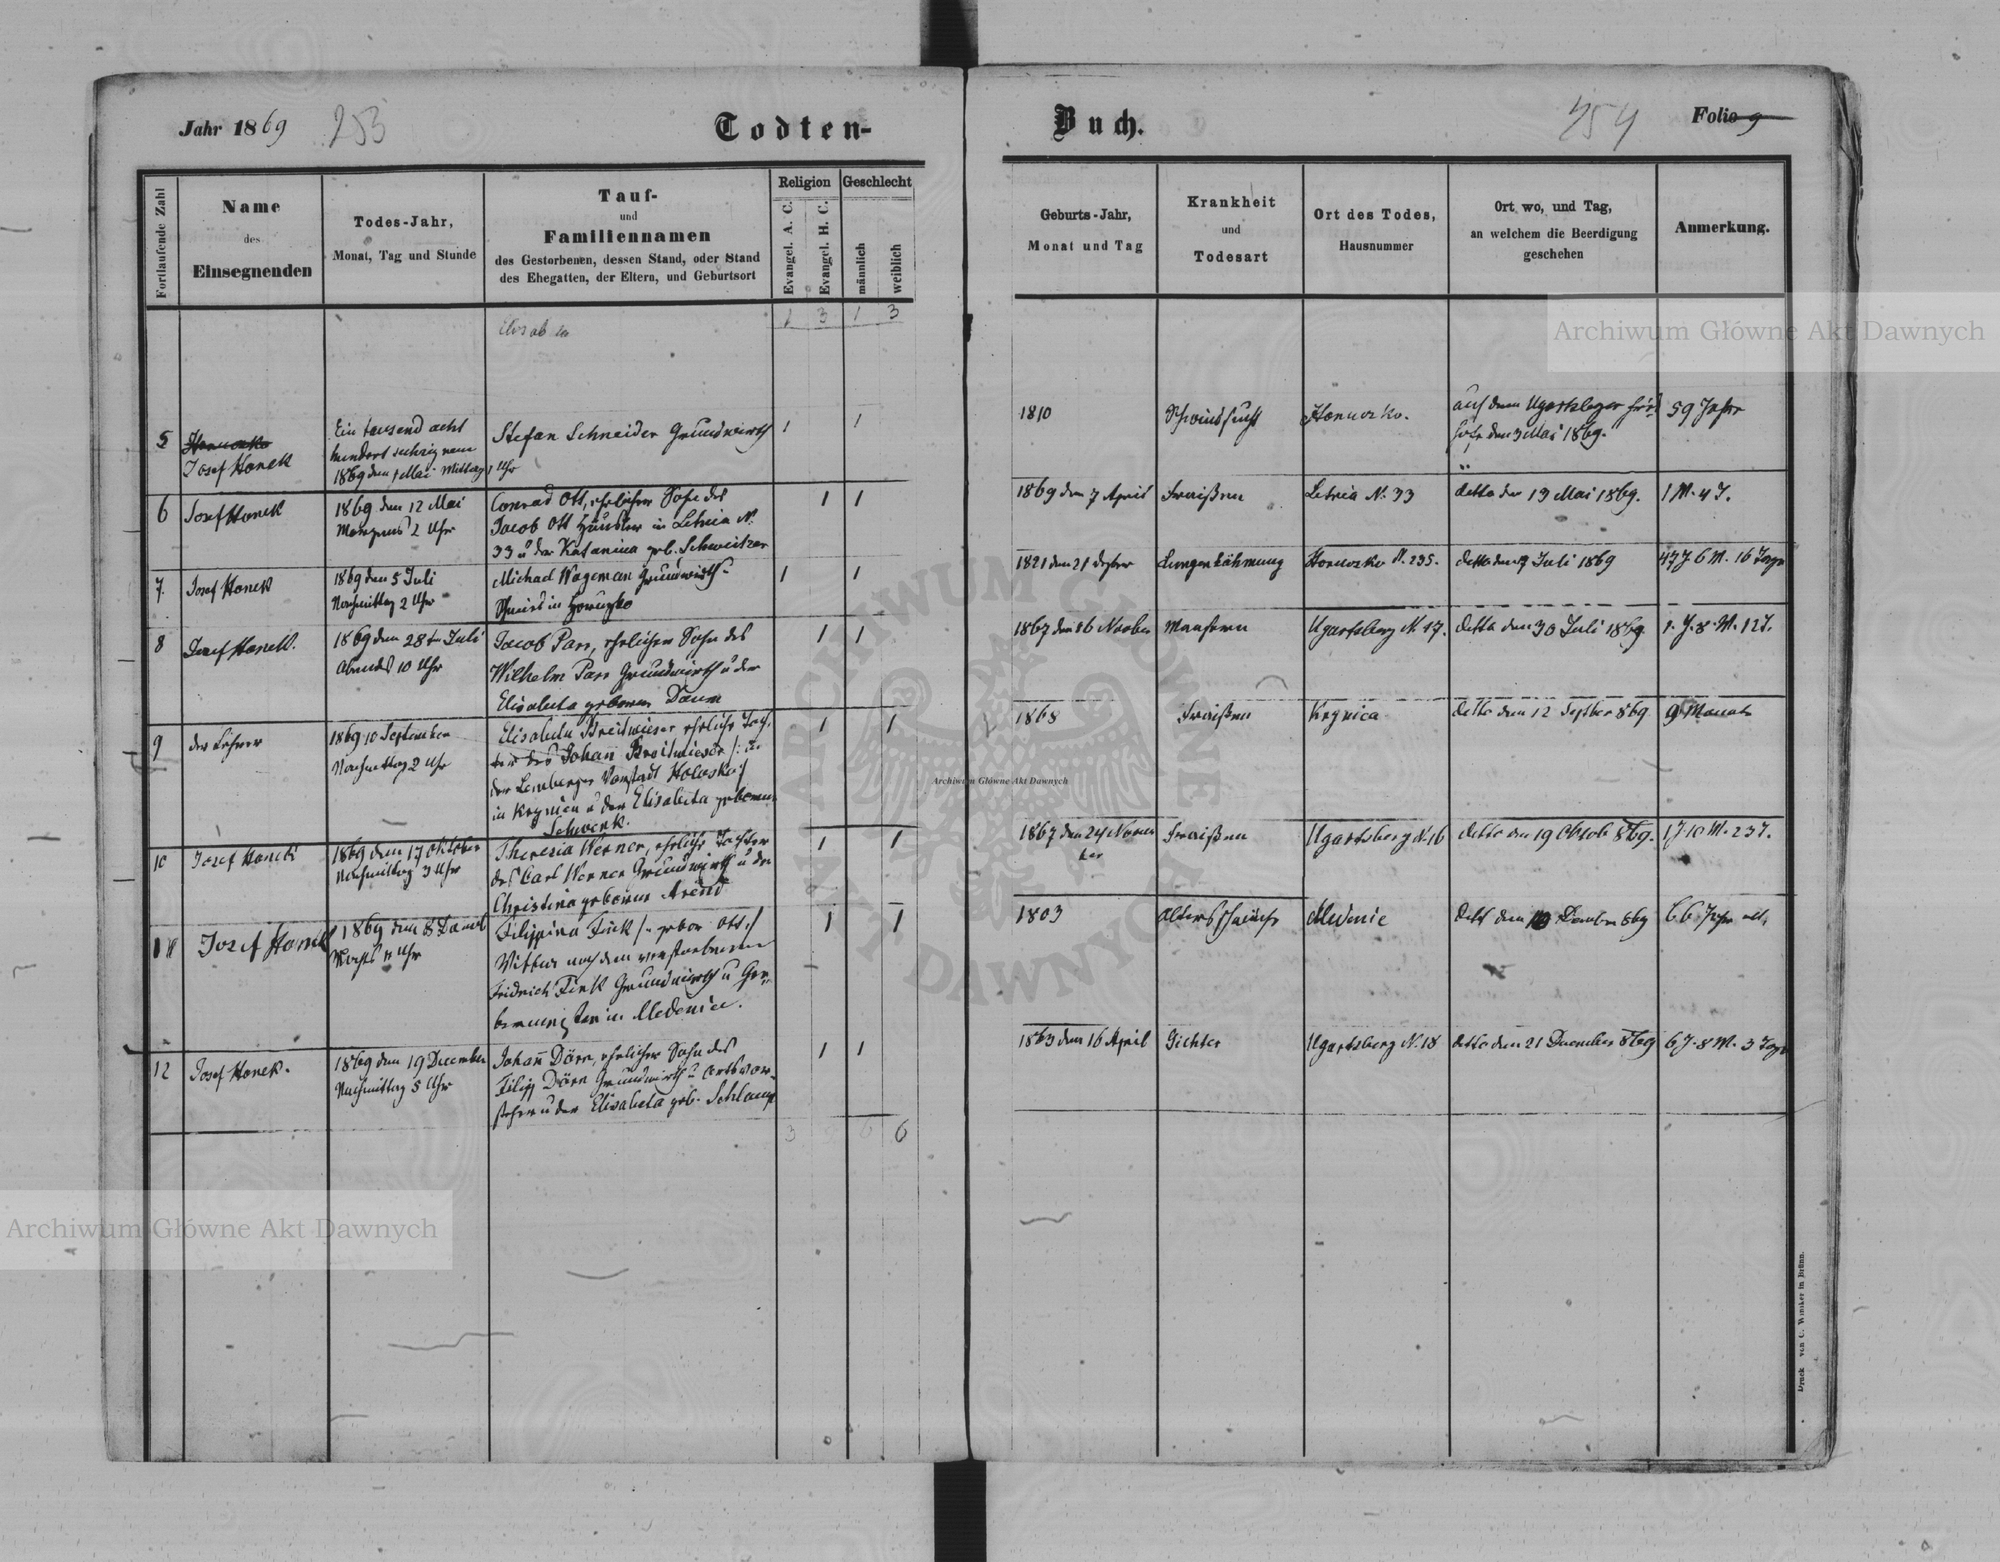 Jahr 1869
253
Todten-
Buch.
254
Folio 9
Fortlaufende Zahl
Name
des
Einsegnenden
Todes-Jahr,
Monat, Tag und Stunde
Tauf-
und
Familiennamen
des Gestorbenen, dessen Stand, oder Stand
des Ehegatten, der Eltern, und Geburtsort
Religion
Evangel. A. C.
Evangel. H. C.
Geschlecht
männlich
weiblich
Geburts-Jahr,
Monat und Tag
Krankheit
und
Todesart
Ort des Todes,
Hausnummer
Ort wo, und Tag,
an welchem die Beerdigung
geschehen
Anmerkung.
1 3 1 3
5
Josef Honek
Ein tausend acht
hundert sechzig neun
1869 den 1 Mai Mittag 1 Uhr
Stefan Schneider Grundwirth
1 1
1810
Schwindsucht
Horuczko.
auf dem Ugartsberger Fried
hofe den 3 Mai 1869.
59 Jahre
6
Josef Honek
1869 den 12 Mai
Morgens 2 Uhr
Conrad Ott, ehelicher Sohn des
Jacob Ott Häusler in Letnia N.
33 u der Katarina geb. Schweitzer
1 1
1869 den 7 April
Fraißen
Letnia N. 33
detto den 13 Mai 1869.
1 M. 4 T.
7.
Josef Honek
1869 den 5 Juli
Nachmittag 2 Uhr
Michael Wageman Grundwirth
Schmied in Horuczko
1 1
1821 den 21
Lungenlähmung
Horuczko N. 235.
detto den 7 Juli 1869
47 J 6 M. 16 Tage
8
Josef Honek.
1869 den 28t Juli
Abends 10 Uhr
Jacob Parr, ehelicher Sohn des
Wilhelm Parr Grundwirth u der
Elisabeta geborene Daum
1 1
1867 den 16 November
Masern
Ugartsberg N 17.
detto den 30 Juli 1869.
1. J. 8. M. 12 T.
9
der Lehrer
1869 10 September
Nachmittag 2 Uhr
Elisabeta Breitwieser eheliche Toch
ter des Johañ Breitwieser /: in
der Lemberger Vorstadt Holosko :/
in Krynica u der Elisabeta geborene
Schwenk.
1 1
1868
Fraißen
Krynica
detto den 12 September 869
9 Monate
10
Josef Honek
1869 den 17 Oktober
Nachmittag 3 Uhr
Theresia Werner, eheliche Tochter
des Carl Werner Grundwirth u der
Christina geborene Arend
1 1
1867 den 24 Novem
ber
Fraißen
Ugartsberg N. 16
detto den 19 Oktob 869.
1 J 10 M. 23 T.
11
Josef Honek
1869 den 8 Decemb
Nachts 11 Uhr
Filippina Fink /: gebor Ott :/
Wittwe nach dem verstorbenen
Fridrich Fink Grundwirth u Ge-
1 1
1803
Altersschwäche
Medenice
detto den 10 Decemb 869
66 Jahre alt
12
Josef Honek.
1869 den 19 December
Nachmittag 5 Uhr
Johañ Dörr, ehelicher Sohn des
Filipp Dörr Grundwirth u Ortsvor-
steher u der Elisabeta geb. Schlamp
1 1
1863 den 16 April
Gichter
Ugartsberg N. 18
detto den 21 December 869
6 J. 8 M. 3 Tage
3 9 6 6
Druck von C. Winiker in Brünn.
Archiwum Główne Akt Dawnych
Archiwum Główne Akt Dawnych
Archiwum Główne Akt Dawnych
ARCHIWUM GŁÓWNE AKT DAWNYCH